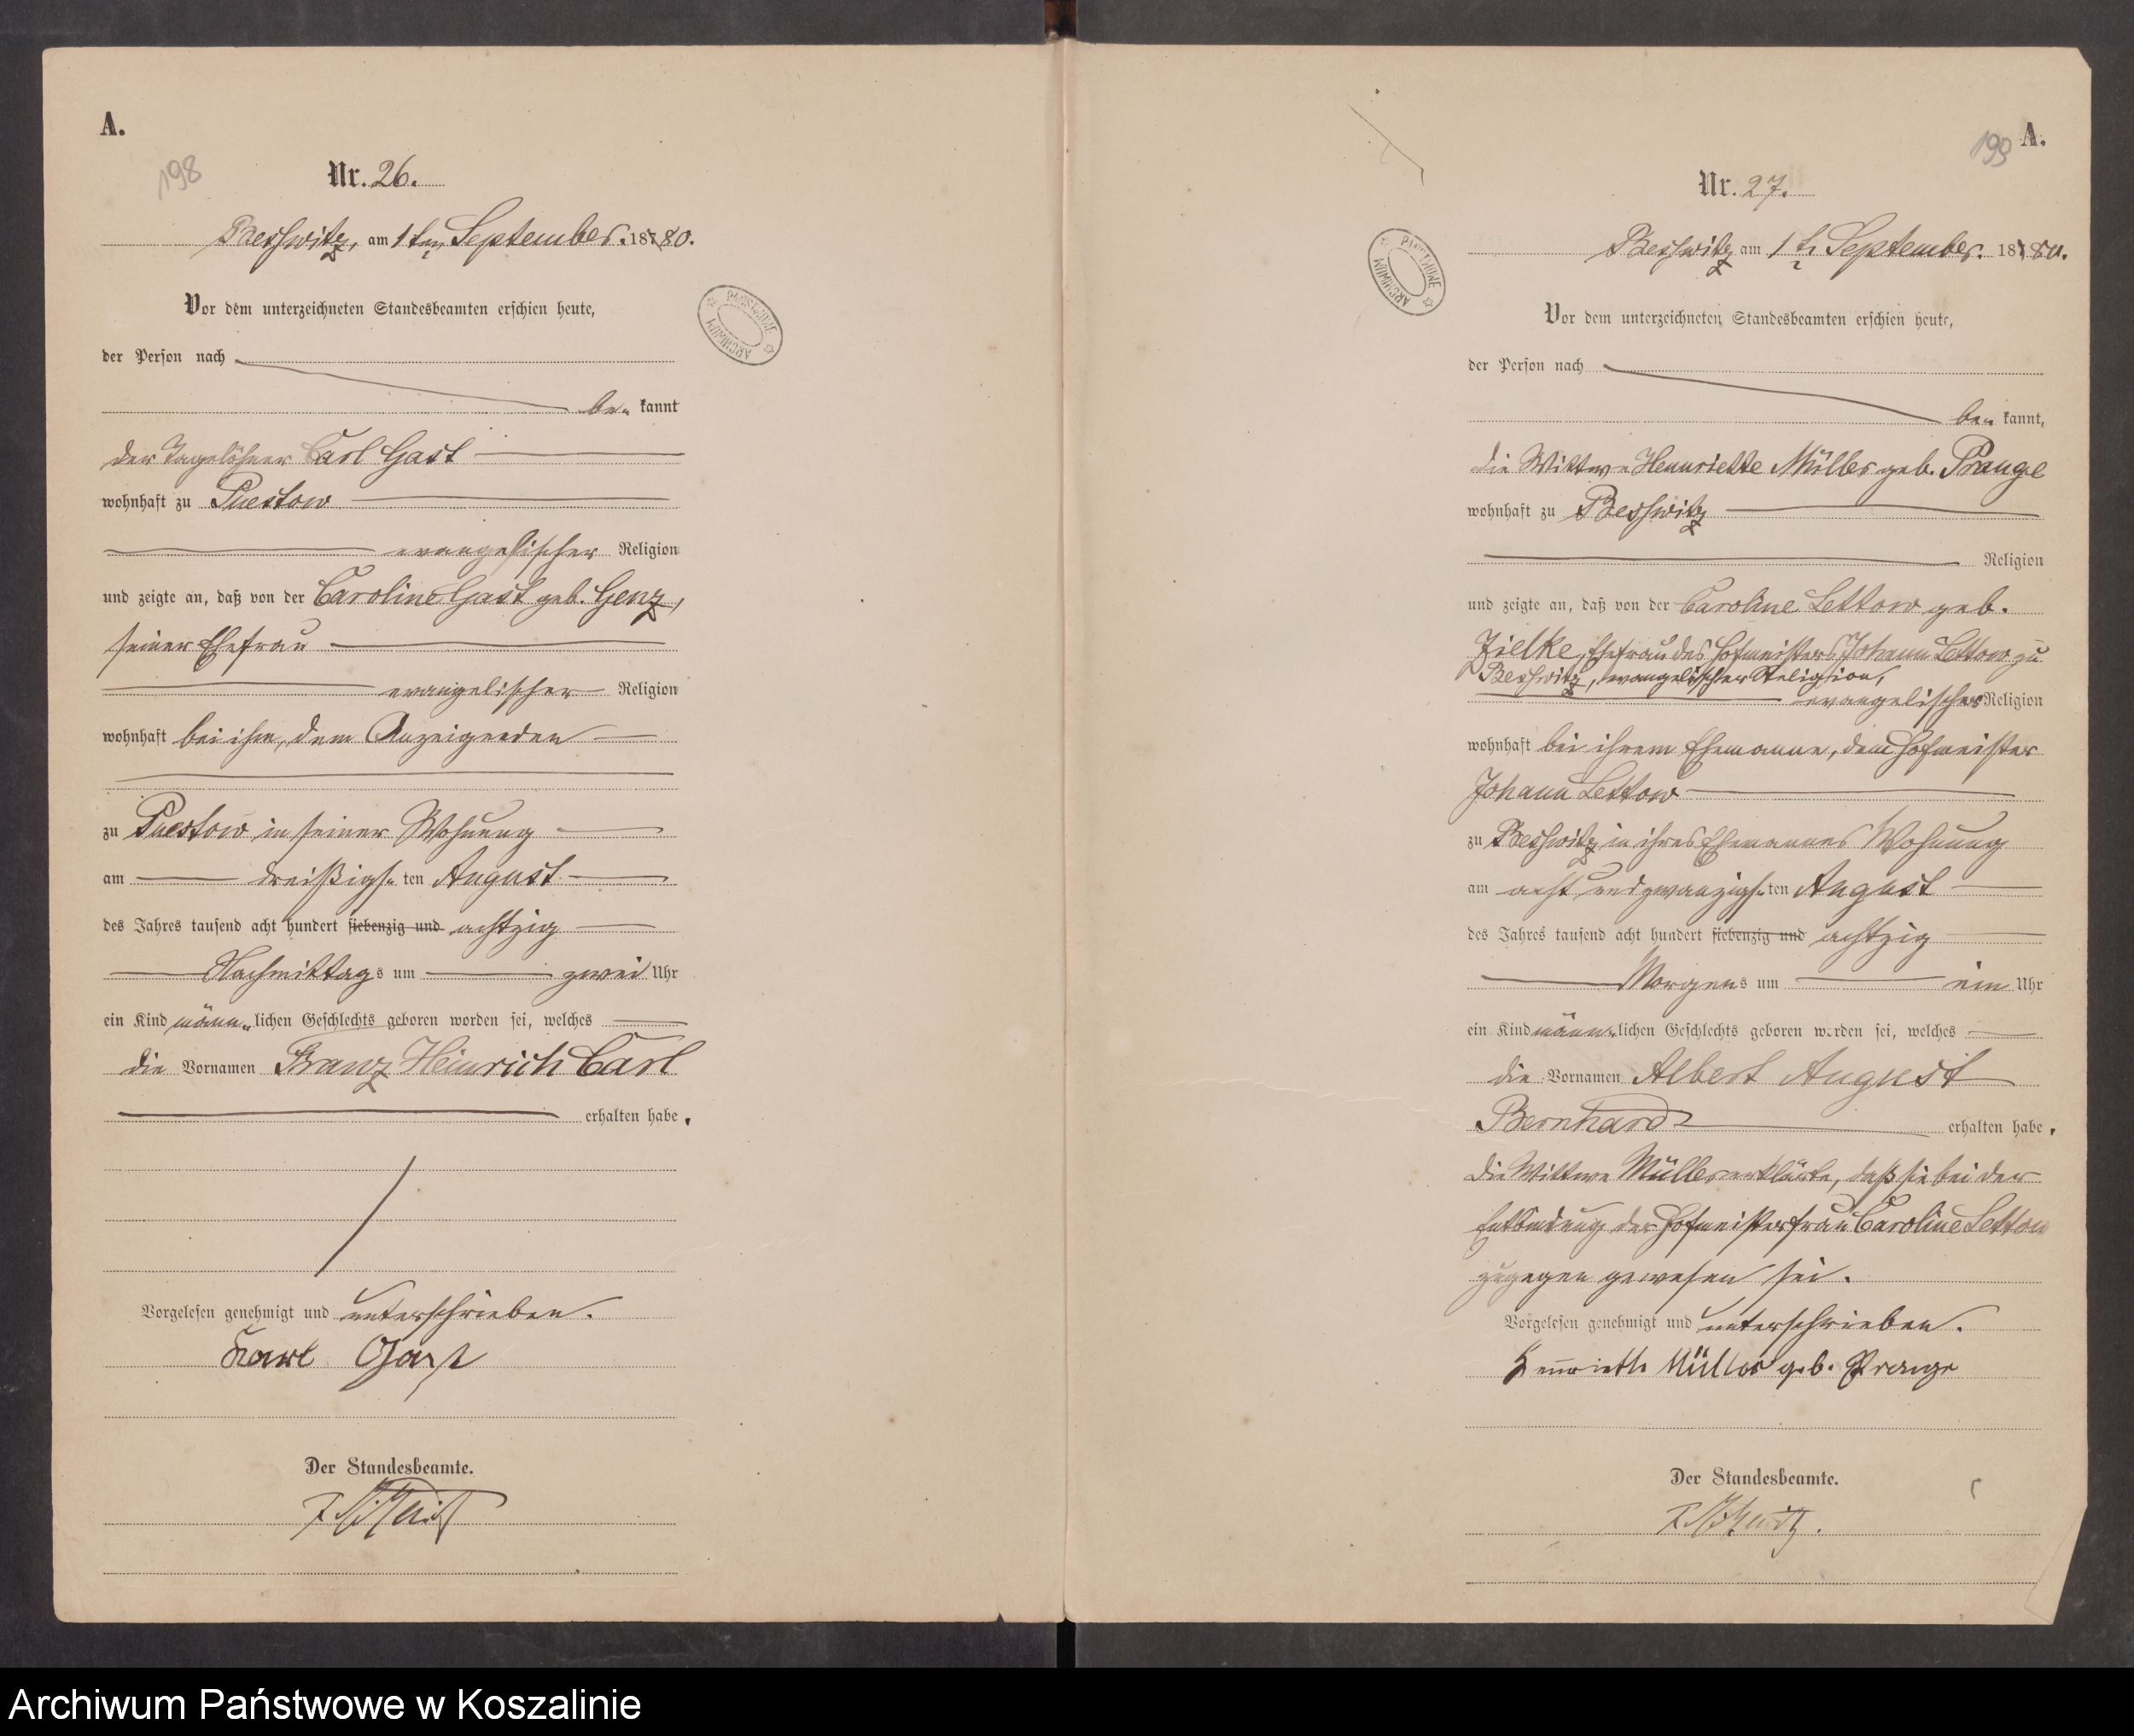 A.
198
Nr. 26.
Besswitz, am 1ten September. 18780.
Vor dem unterzeichneten Standesbeamten erschien heute,
der Person nach
be- kannt
der Tagelöhner Carl Gast
wohnhaft zu Puestow
evangelischer Religion
und zeigte an, daß von der Caroline Gast geb. Genz,
seiner Ehefrau
evangelischer Religion
wohnhaft bei ihm, dem Anzeigenden
zu Puestow in seiner Wohnung
am dreißigs-ten August
des Jahres tausend acht hundert siebenzig und achtzig
Nachmittags um zwei Uhr
ein Kind männ-lichen Geschlechts geboren worden sei, welches
die Vornamen Franz Heinrich Carl
erhalten habe.
Vorgelesen genehmigt und unterschrieben.
Karl Gast
Der Standesbeamte.
ARCHIWUM PAŃSTWOWE
A.
199
Nr. 27.
Besswitz am 1t. September. 18780.
Vor dem unterzeichneten Standesbeamten erschien heute,
der Person nach
be- kannt,
die Wittwe Hennriette Müller geb. Prange
wohnhaft zu Besswitz
Religion
und zeigte an, daß von der Caroline Lettow geb.
Zielke, Ehefrau des Hofmeisters Johann Lettow zu
Besswitz, evangelischer Religion,
evangelischer Religion
wohnhaft bei ihrem Ehemanne, dem Hofmeister
Johann Lettow
zu Besswitz in ihres Ehemannes Wohnung
am acht und zwanzigs-ten August
des Jahres tausend acht hundert siebenzig und achtzig
Morgens um ein Uhr
ein Kind männ-lichen Geschlechts geboren worden sei, welches
die Vornamen Albert August
Bernhard erhalten habe.
Die Wittwe Müller erklärte, daß sie bei der
Entbindung der Hofmeisterfrau Caroline Lettow
zugegen gewesen sei.
Vorgelesen genehmigt und unterschrieben.
Hennriette Müller geb. Prange
Der Standesbeamte.
ARCHIWUM PAŃSTWOWE
Archiwum Państwowe w Koszalinie